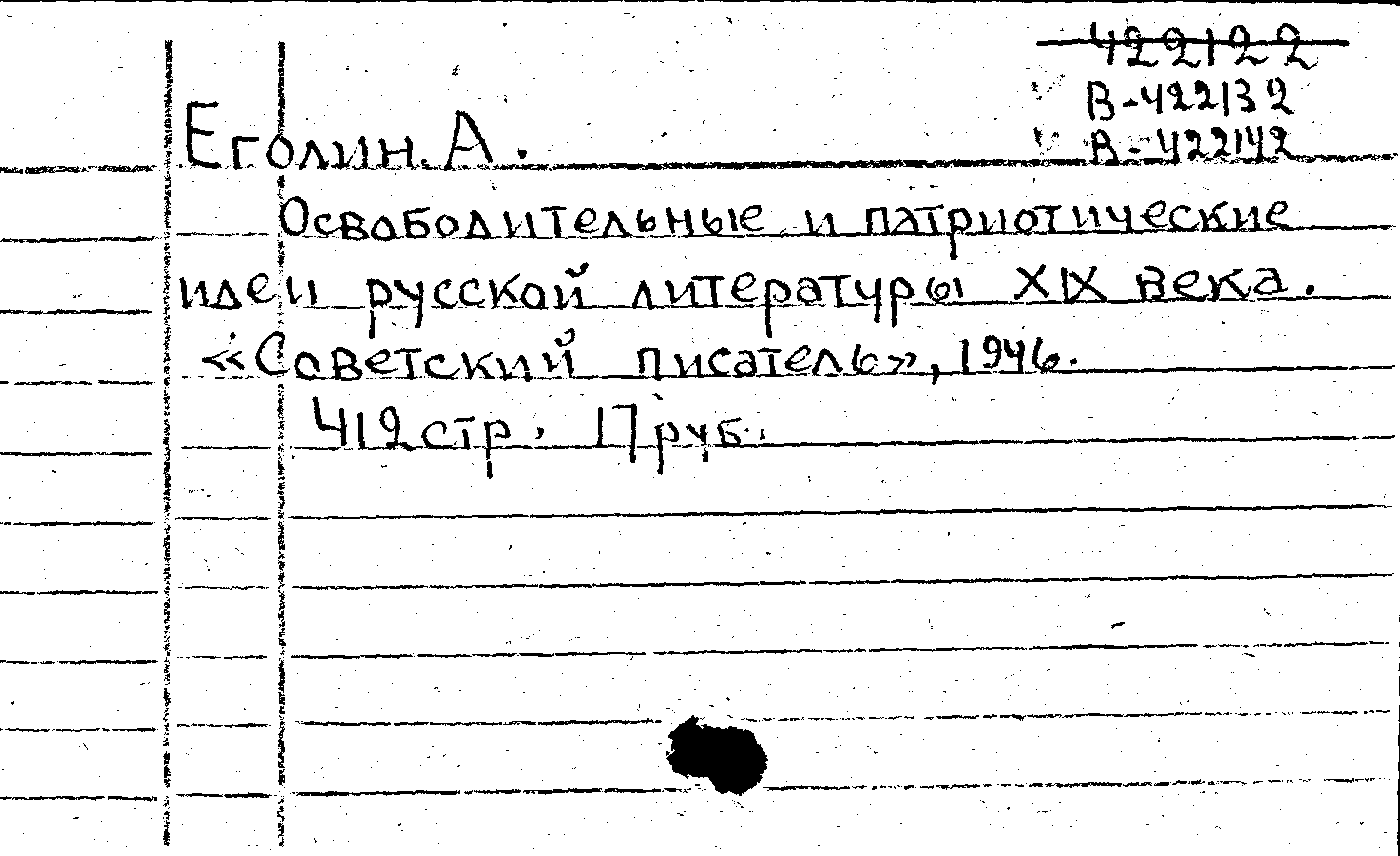 422122
В-422132
В-422142
Еголин. А.
Освободительные и патриотические
идеи русской литературы XIX века.
«Советский писатель», 1946.
412 стр. 17 руб.